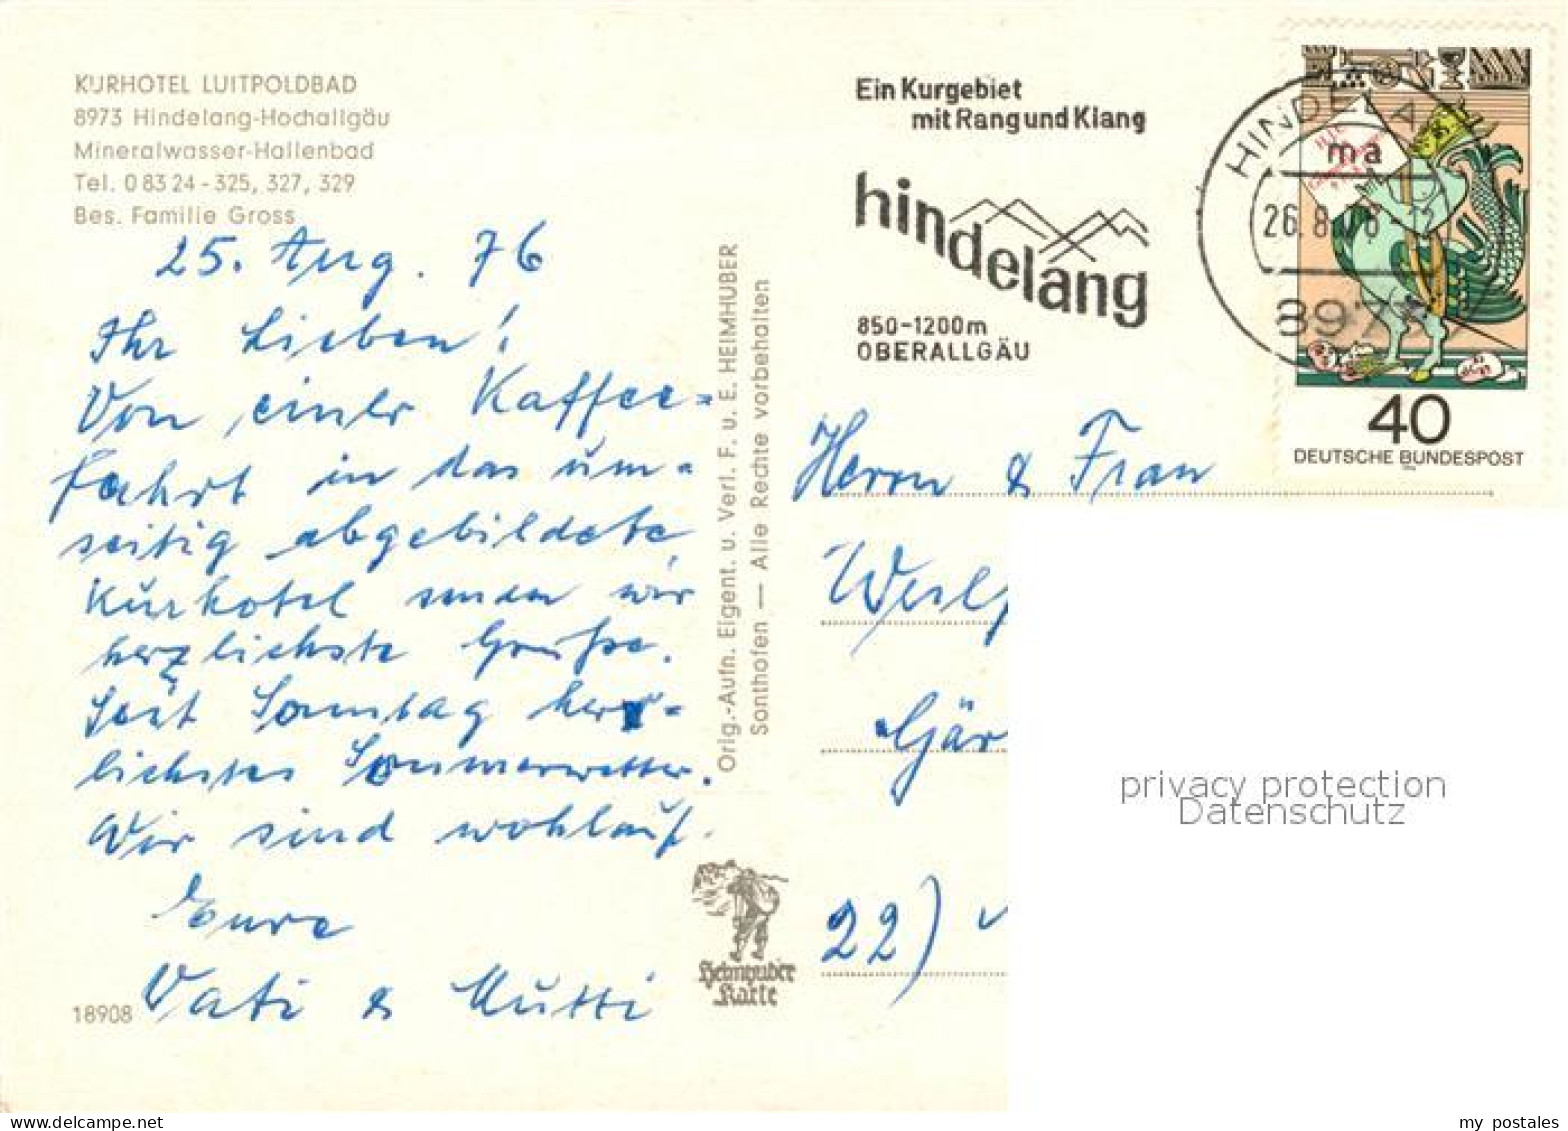 KURHOTEL LUITPOLDBAD
8973 Hindelang-Hochallgäu
Mineralwasser-Hallenbad
Tel. 0 83 24 - 325, 327, 329
Bes. Familie Gross
25. Aug. 76
Ihr Lieben!
Von einer Kaffee=
fahrt in das um=
seitig abgebildete
Kurhotel senden wir
herzlichste Grüße.
Seit Sonntag herr=
lichstes Sommerwetter.
Wir sind wohlauf.
Eure
Vati & Mutti
18908
Orig.-Aufn. Eigent. u. Verl. F. u. E. HEIMHUBER
Sonthofen — Alle Rechte vorbehalten
Heimhuber
Karte
Ein Kurgebiet
mit Rang und Klang
hindelang
850-1200m
OBERALLGÄU
HINDELA
ma
26.8.76
897
40
DEUTSCHE BUNDESPOST
Herrn & Frau
Gär
22)
privacy protection
Datenschutz
my postales